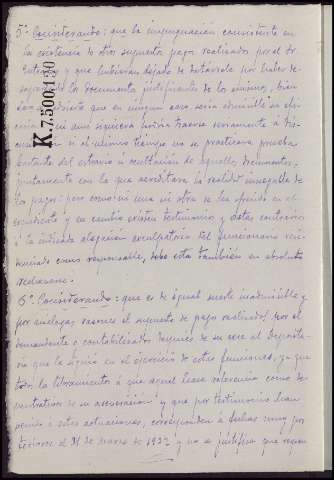 5º Considerando: que la impugnación consistente en
la existencia de otros supuestos pagos realizados por el Sr.
y que hubieran dejado de datársele por haber de-
saparecido los documentos justificantes de los mismos, bien
que en ningún caso sería admisible su efica-
cia ni aun siquiera podría traerse seriamente á dis-
cusión si al mismo tiempo no se practicara prueba
bastante del extravío ú ocultación de aquellos documentos,
juntamente con la que acreditara la realidad innegable de
los pagos; pero como ni una ni otra se ha ofrecido en el
expediente y en cambio existen testimonios y datos contrarios
á la indicada alegación exculpatoria del funcionario
como responsable, debe esta también en absoluto
rechazarse.
6º Considerando: que es de igual suerte inadmisible y
por análogas razones el supuesto de pagos realizados por el
demandante ó contabilizados después de su cese al Deposita-
rio que le siguió en el ejercicio de estas funciones, ya que
todos los libramientos á que aquel hace referencia como de-
mostrativos de su aseveración y que por testimonio han
venido á estas actuaciones, corresponden á fechas muy pos-
teriores al 31 de marzo de 1922 y no se justifica que
K.7.500.180